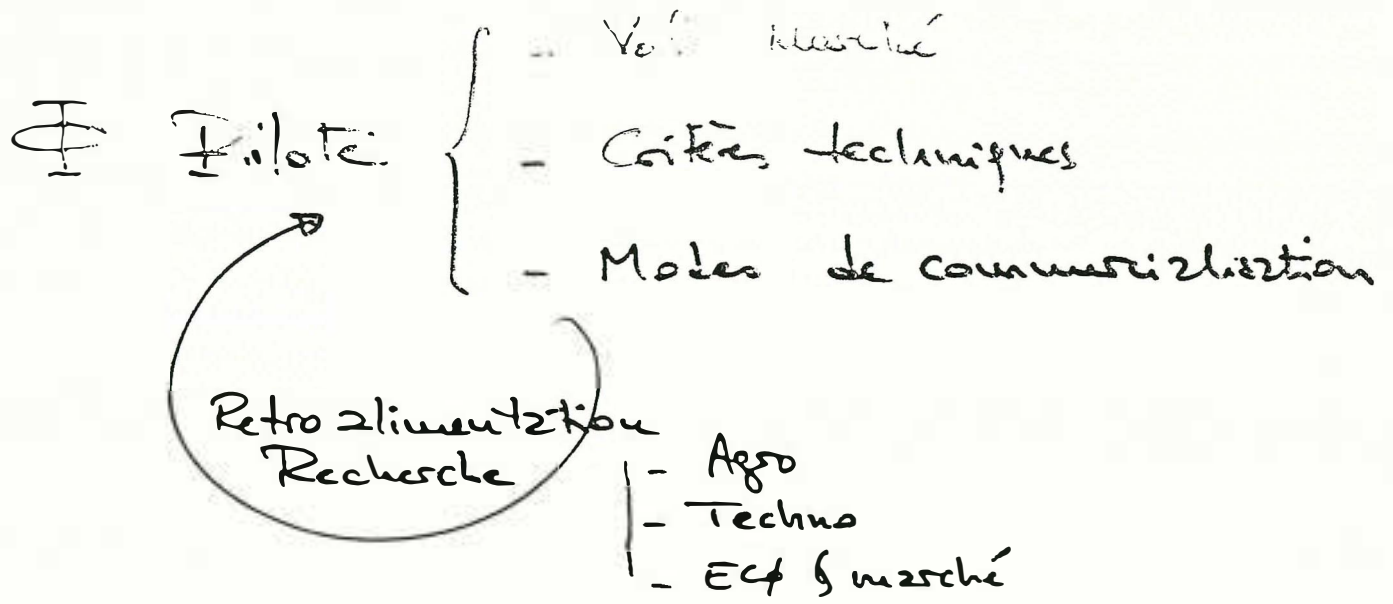 - marché
Φ Pilote - Critères techniques
- Modes de commercialisation
Retro alimentation
Recherche
- Agro
- Techno
- ECφ & marché